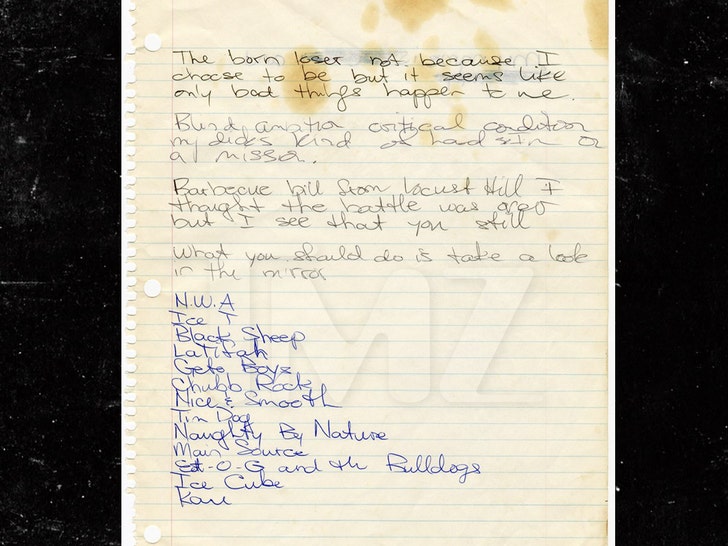 The born loser not because I
choose to be but it seems like
only bad things happen to me.
Blind ambition critical condition
my dicks kind of hard I'm on
a mission.
Barbecue bill from locust Hill I
thought the battle was over
but I see that you still
What you should do is take a look
in the mirror
N.W.A
Ice T
Black Sheep
Latifah
Geto Boys
Chubb Rock
Nice & Smooth
Tim Dog
Naughty By Nature
Main Source
Ed-O-G and th Bulldogs
Ice Cube
TMZ